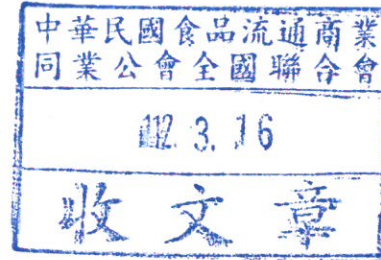 中華民國食品流通商業
同業公會全國聯合會
112.3.16
收文章